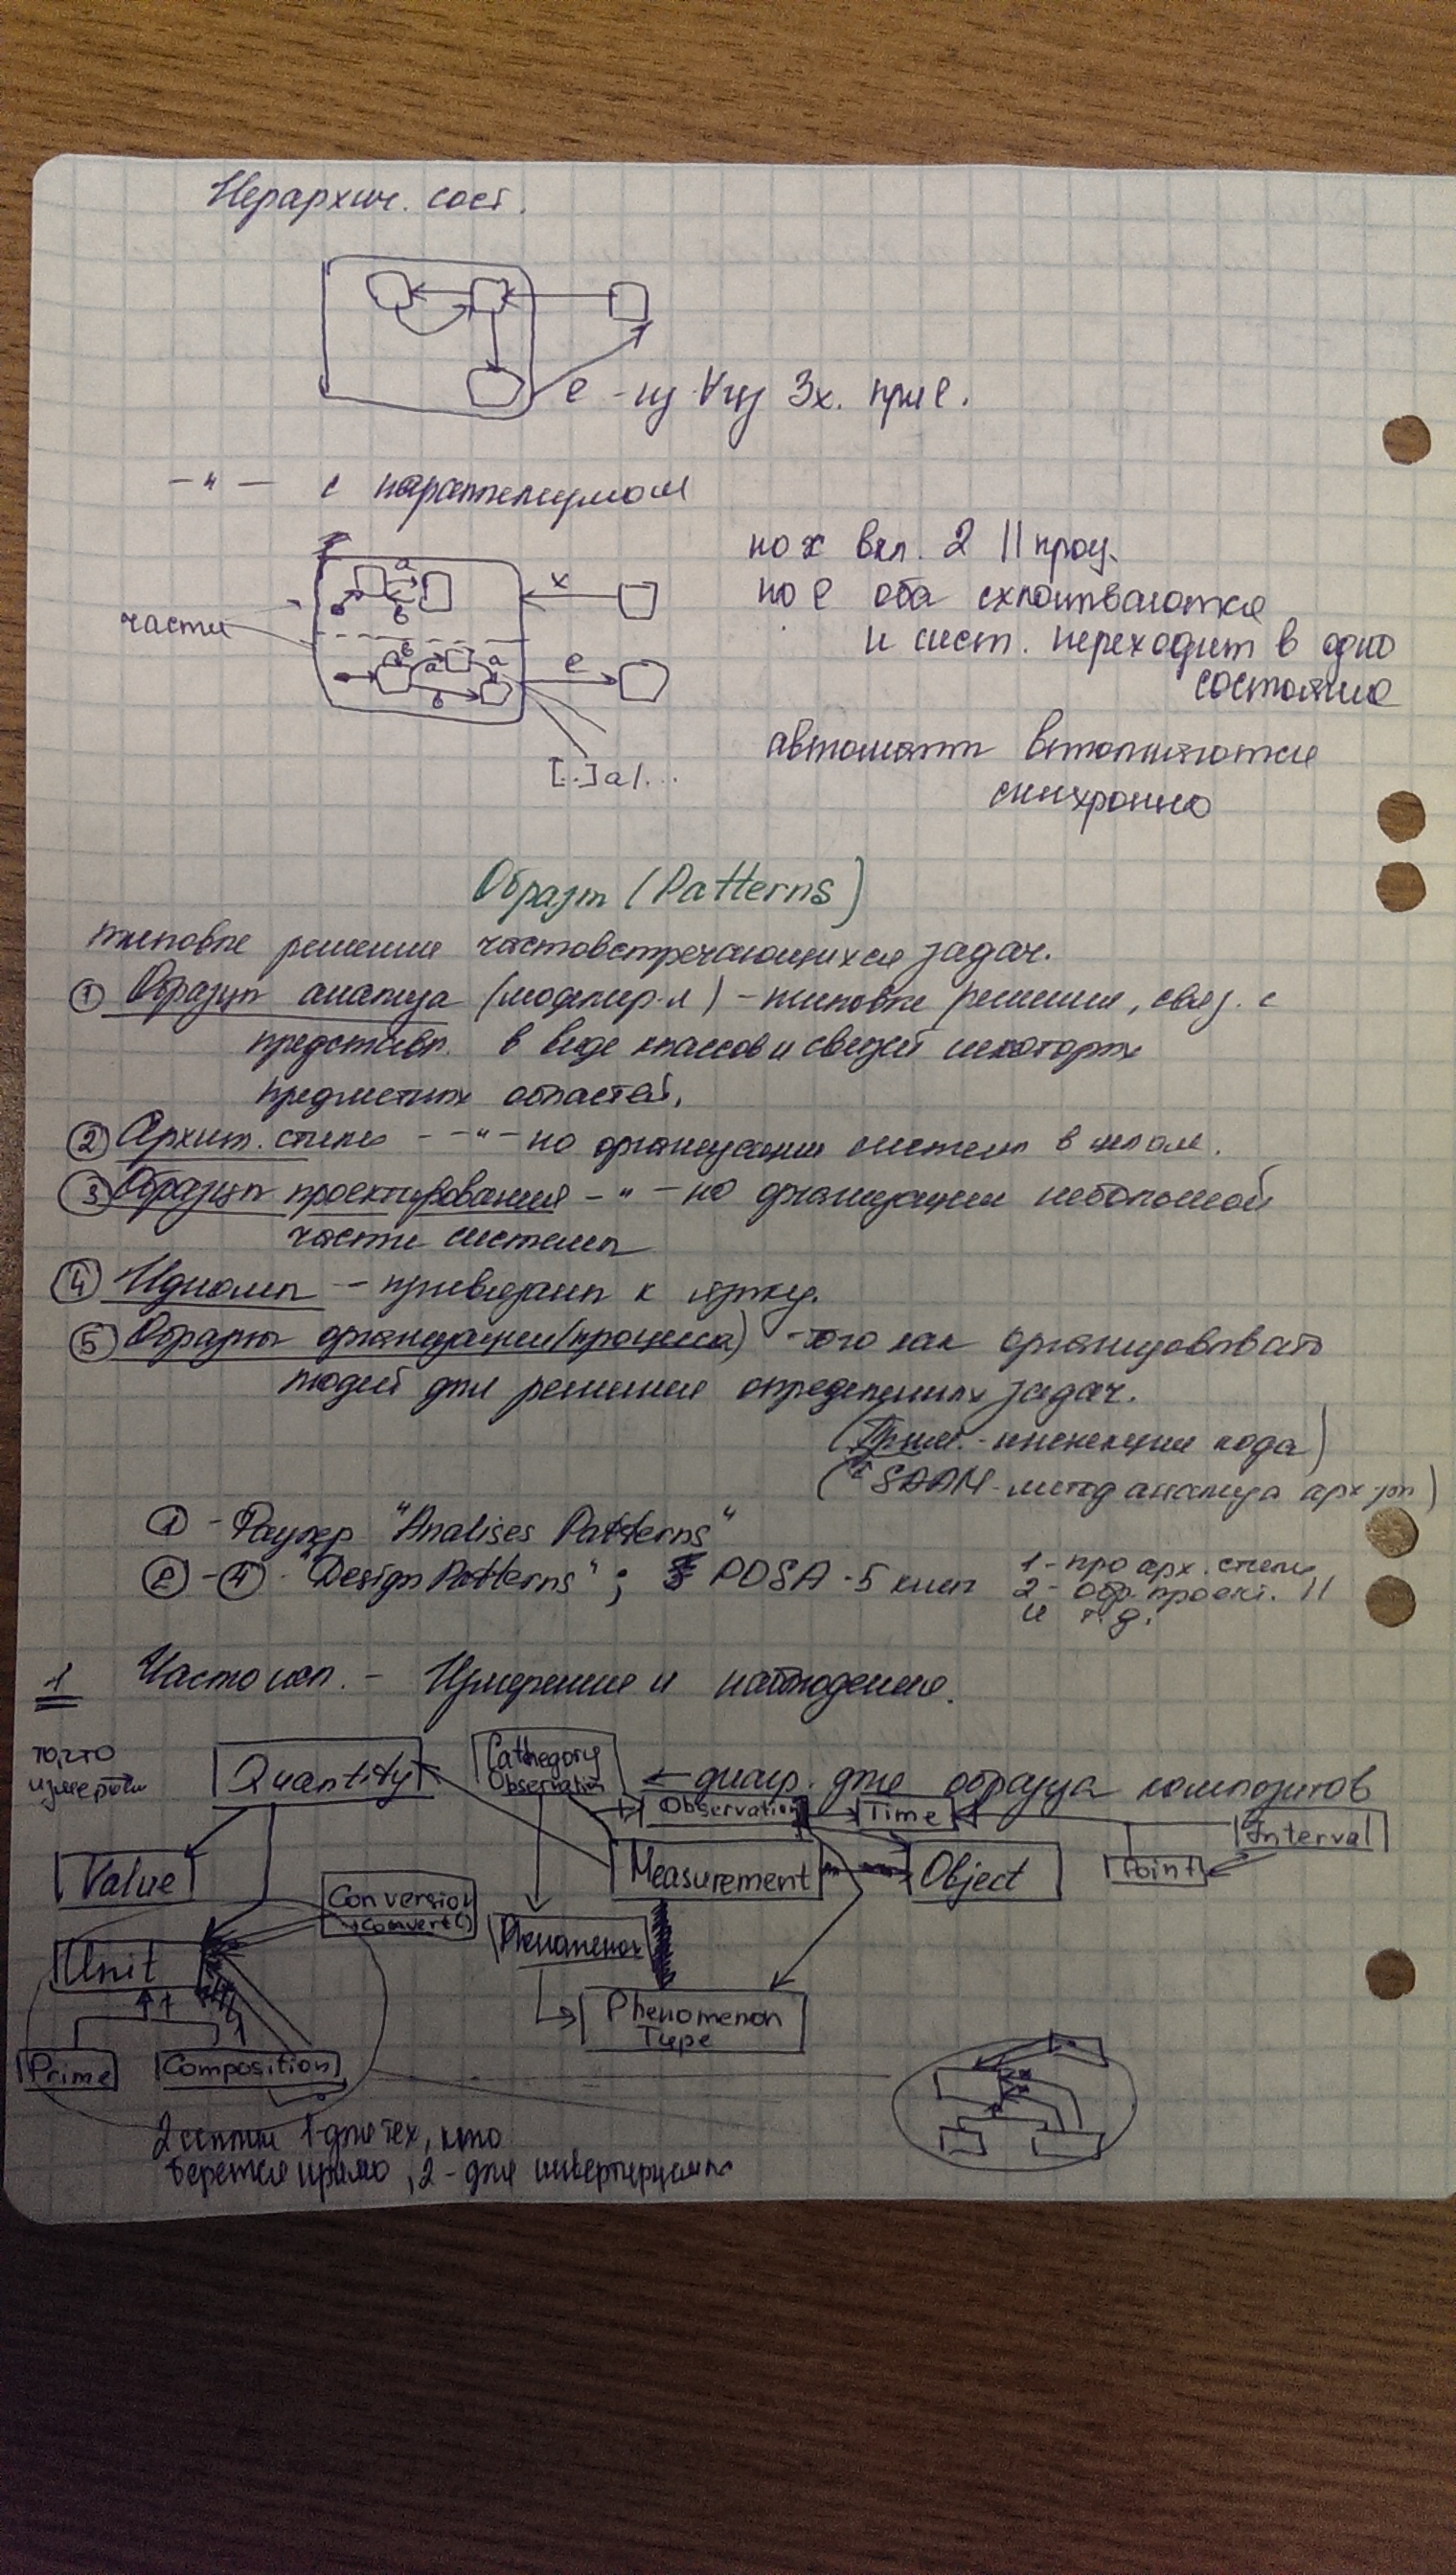 Иерархич. сост.
e - из ∀ из 3х. при e.
—"— с параллелизмом
по x вкл. 2 || проц.
по e оба схлопываются
и сист. переходит в одно
состояние
части
a
b
x
a
a
b
e
[..]a/...
автоматы выполняются
синхронно
Образцы (Patterns)
типовые решения частовстречающихся задач.
① Образцы анализа (моделир-я) - типовые решения, связ. с
представл. в виде классов и связей некоторых
предметных областей.
② Архит. стили - -"- по организации системы в целом.
③ Образцы проектирования -"- по организации небольшой
части системы
④ Идиомы - привязаны к языку.
⑤ Образцы организации (процесса) - того как организовывать
людей для решения определенных задач.
(Прим. - инспекция кода)
(SAAM - метод анализа арх-ры)
① - Фаулер "Analises Patterns"
② - ④ - "Design Patterns" ; POSA - 5 книг
1 - про арх. стили
2 - обр. проект. ||
и т.д.
1 Часто исп. - Измерение и наблюдение.
то, что
измеряем
Quantity
Cathegory
Observation
← диагр. для образца композитов
Observation
Time
Interval
Point
Value
Measurement
Object
Conversion
+Convert()
Phenomenon
Unit
Phenomenon
Type
Prime
Composition
2 ссылки 1-для тех, кто
берется прямо, 2 - для